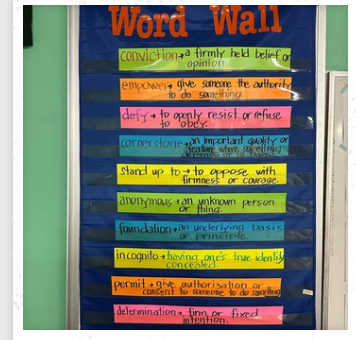 Word Wall
conviction → a firmly held belief or
opinion.
empower → give someone the authority
to do something.
defy → to openly resist or refuse
to obey.
cornerstone → an important quality or
feature
stand up to → to oppose with
firmness or courage.
anonymous → an unknown person
or thing.
foundation → an underlying basis
or principle.
incognito → having one's true identity
concealed.
permit → give authorisation or
consent to someone to do something
determination → firm or fixed
intention.